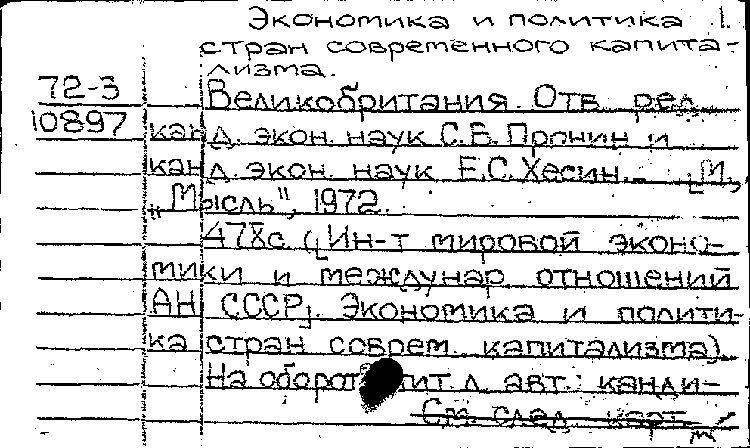 Экономика и политика 1.
стран современного капита-
лизма.
72-3 Великобритания. Отв. ред.
10897 канд. экон. наук С.В. Пронин и
канд. экон. наук Е.С. Хесин. - [М.,
„Мысль", 1972.
478с. ([Ин-т мировой эконо-
мики и междунар. отношений
АН СССР]. Экономика и полити-
ка стран соврем. капитализма).
На оборот тит. л. авт.: канди-
См. след. карт.